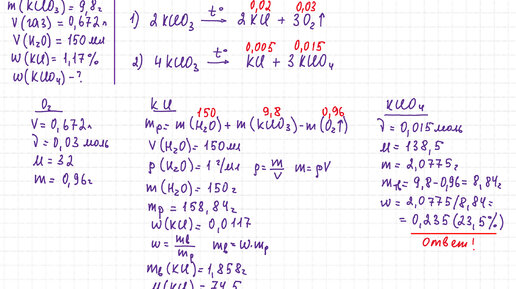 m(KClO₃) = 9,8г
V(газ) = 0,672л
V(H₂O) = 150 мл
w(KCl) = 1,17%
w(KClO₄) - ?
0,02 0,03
1) 2KClO₃ t° → 2KCl + 3O₂↑
0,005 0,015
2) 4KClO₃ t° → KCl + 3KClO₄
O₂
V = 0,672л
ν = 0,03 моль
M = 32
m = 0,96г
KCl
150 9,8 0,96
mр = m(H₂O) + m(KClO₃) - m(O₂↑)
V(H₂O) = 150мл
ρ(H₂O) = 1 г/мл ρ = m/V m = ρV
m(H₂O) = 150г
mр = 158,84г
w(KCl) = 0,0117
w = mв/mр mв = w·mр
mв(KCl) = 1,858г
M(KCl) = 74,5
KClO₄
ν = 0,015 моль
M = 138,5
m = 2,0775г
mтв = 9,8-0,96 = 8,84г
w = 2,0775/8,84 =
= 0,235 (23,5%)
Ответ!